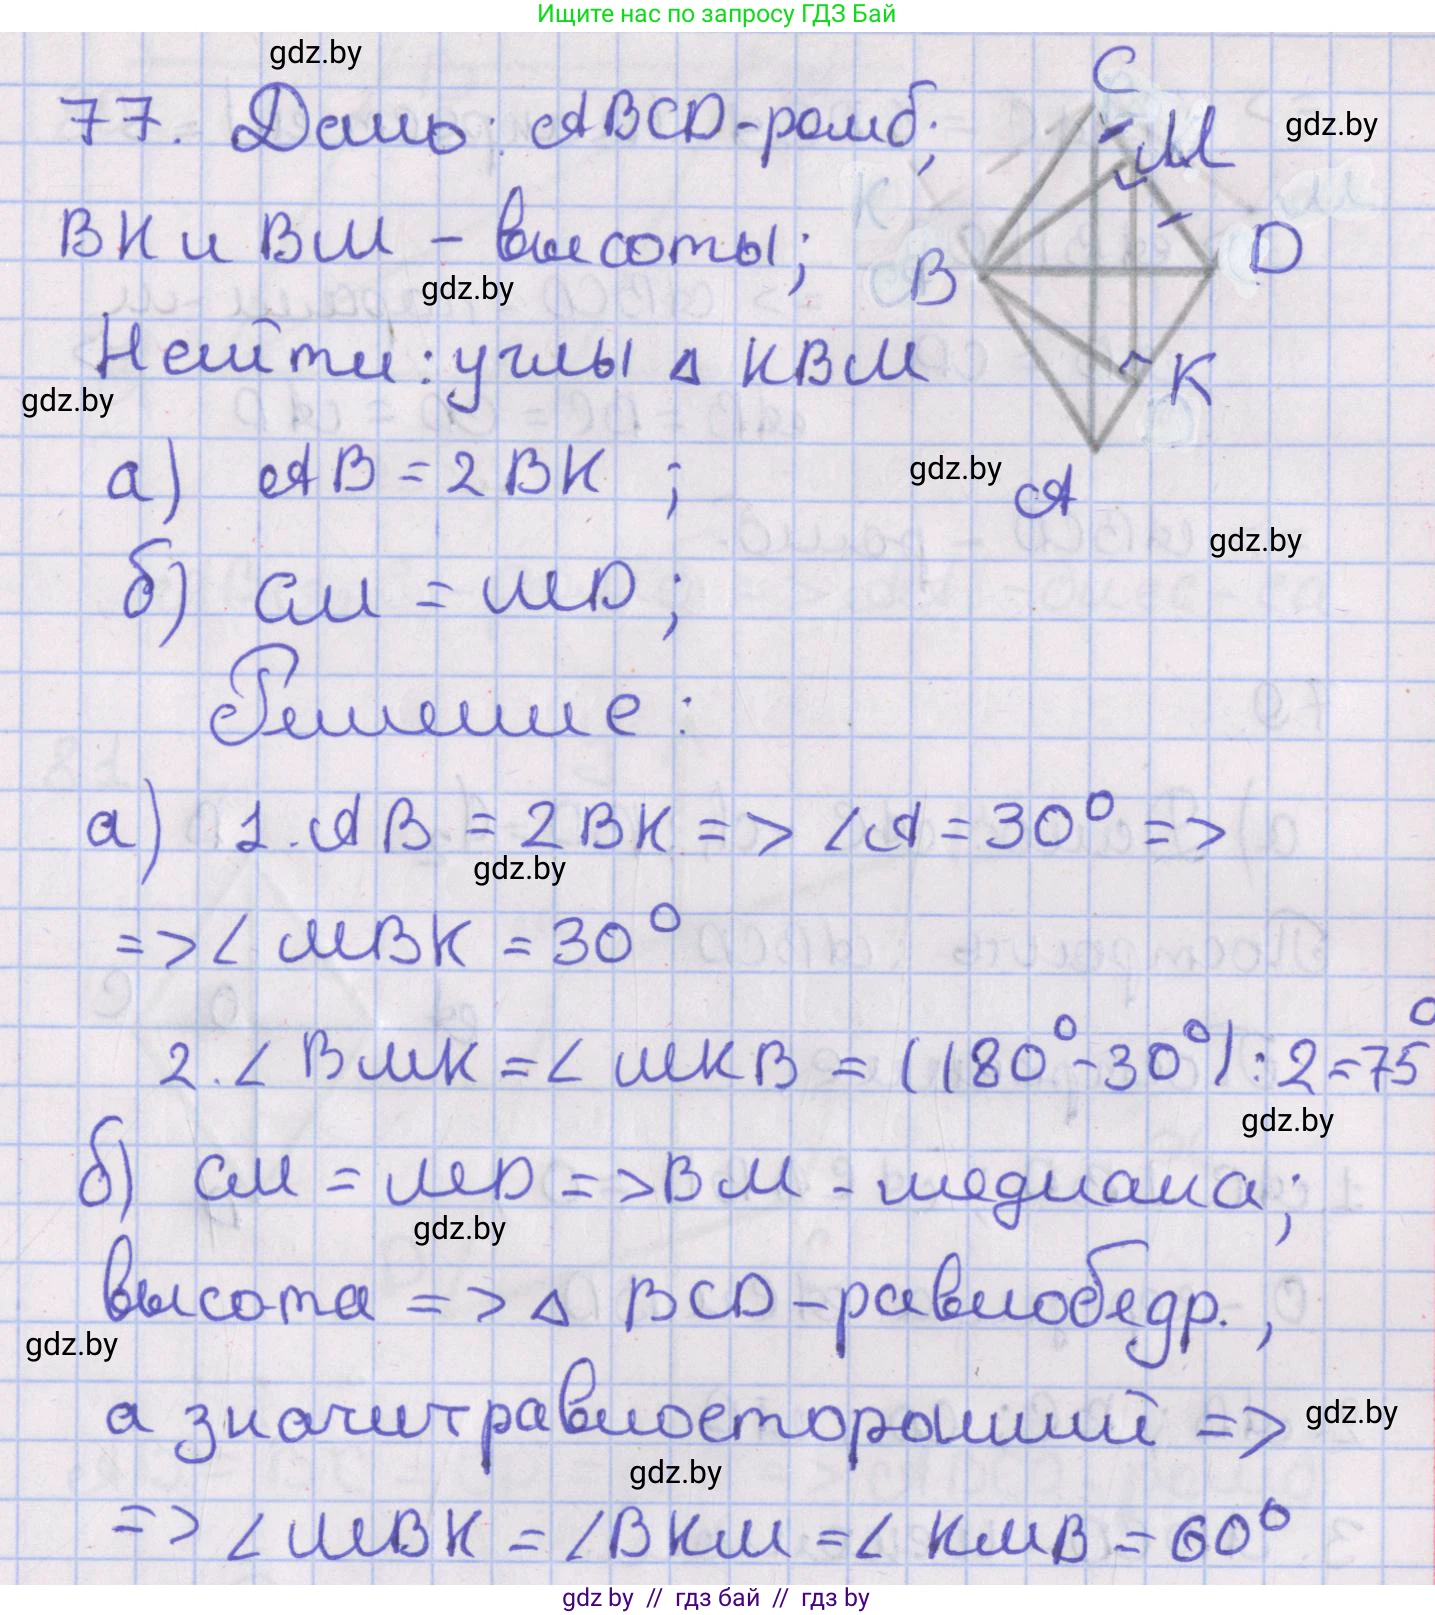 Ищите нас по запросу ГДЗ Бай
gdz.by
77. Дано: ABCD-ромб;
gdz.by
C
M
BK и BM - высоты;
B
D
gdz.by
Найти: углы △ KBM
K
gdz.by
а) AB = 2BK ;
gdz.by
A
gdz.by
б) CM = MD;
Решение:
а) 1. AB = 2BK => ∠A = 30° =>
gdz.by
=> ∠ MBK = 30°
2. ∠ BMK = ∠ MKB = (180° - 30°) : 2 = 75°
gdz.by
б) CM = MD => BM - медиана;
gdz.by
высота => △ BCD - равнобедр.,
gdz.by
а значит равносторонний =>
gdz.by
gdz.by
=> ∠ MBK = ∠BKM = ∠ KMB = 60°
gdz.by // гдз бай // гдз by